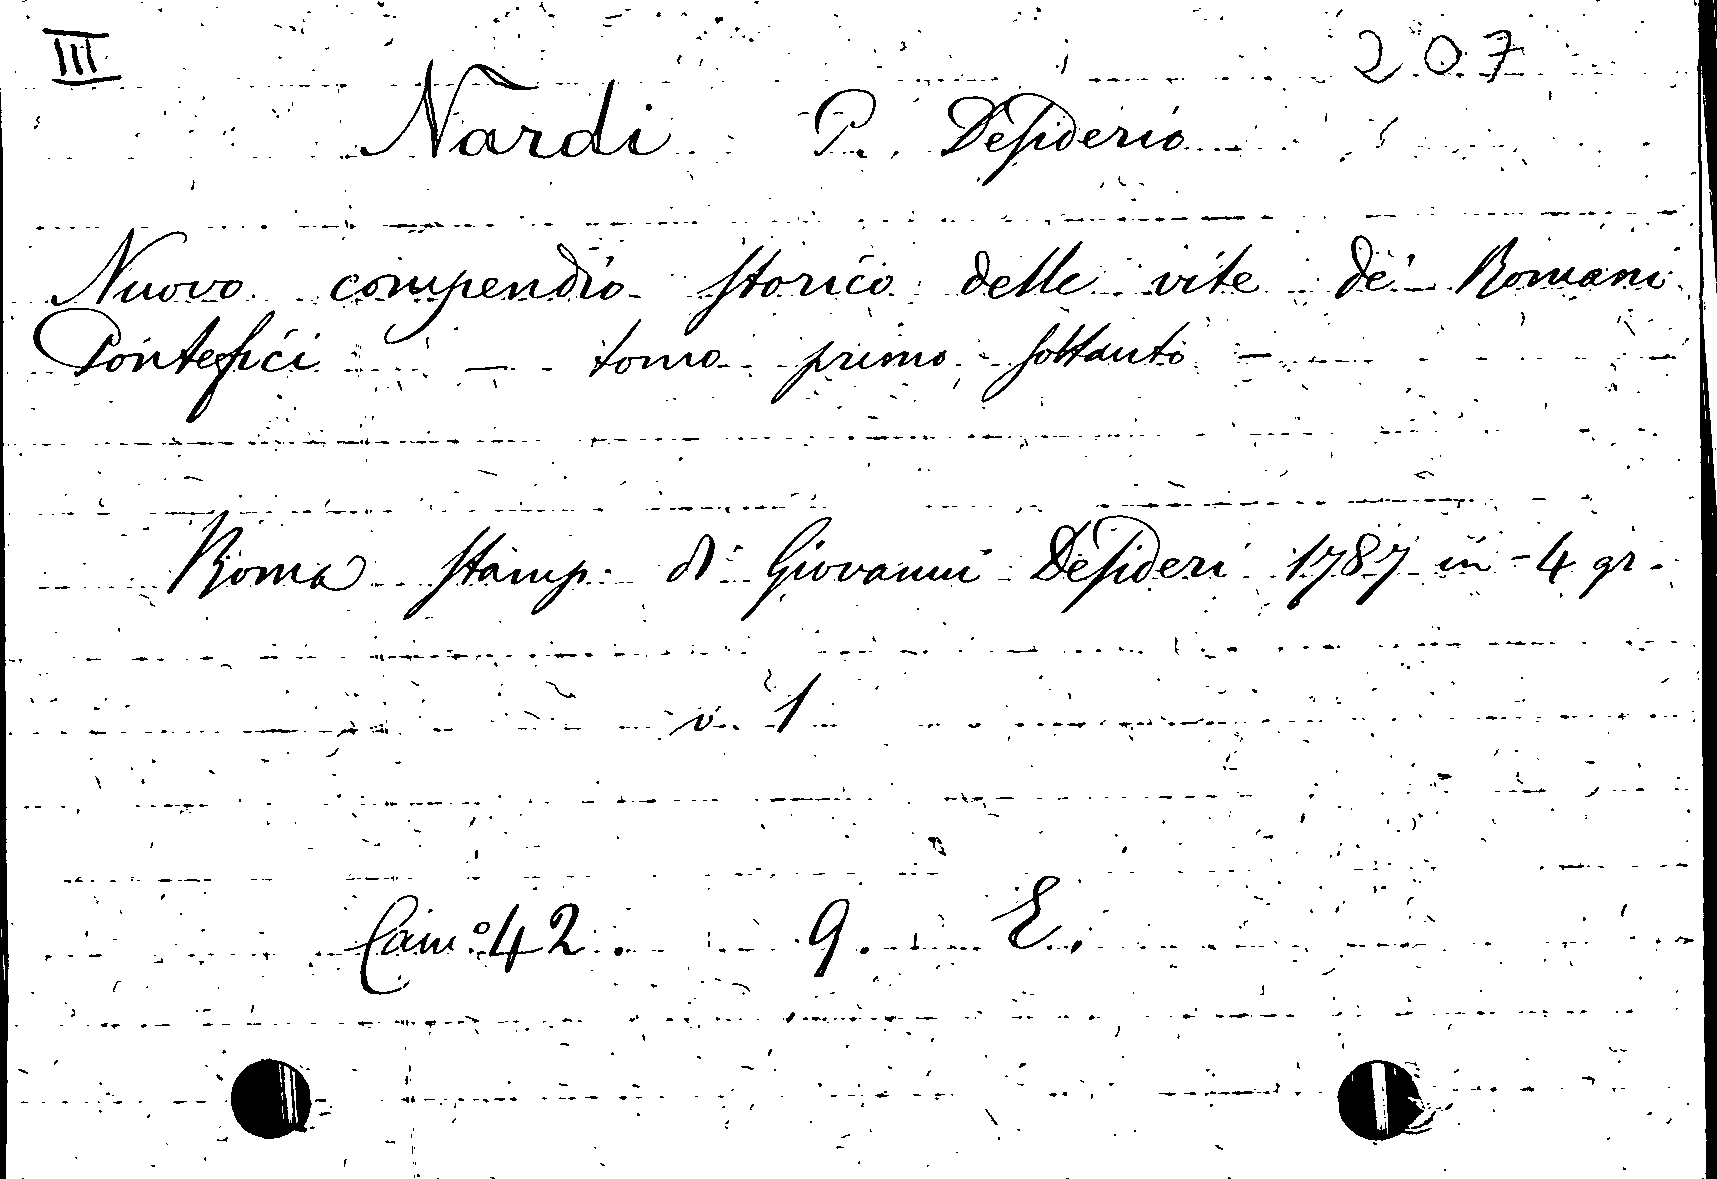 III 207
Nardi P. Desiderio
Nuovo compendio storico delle vite de' Romani
Pontefici — tomo primo soltanto —
Roma stamp. di Giovanni Desideri 1787 in-4 gr.
v. 1
Cam.º 42. 9. E.